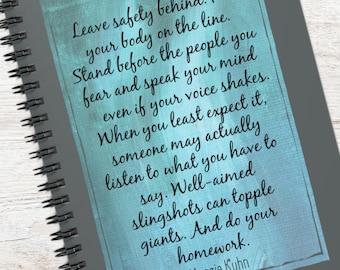 Leave safety behind.
your body on the line.
Stand before the people you
fear and speak your mind
even if your voice shakes.
When you least expect it,
someone may actually
listen to what you have to
say. Well-aimed
slingshots can topple
giants. And do your
homework.
Kuhn